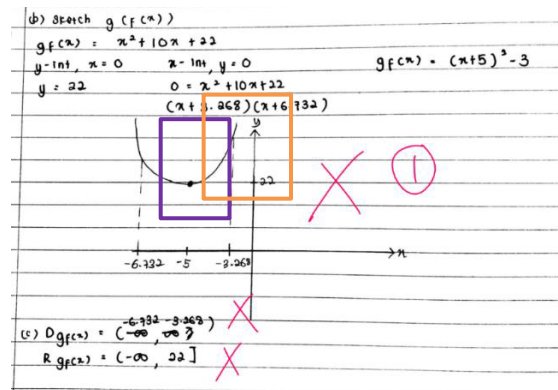 (b) Sketch g(f(x))
gf(x) = x² + 10x + 22
y-int, x = 0 x-int, y = 0 gf(x) = (x+5)² - 3
y = 22 0 = x² + 10x + 22
(x + 3.268)(x + 6.732)
y
22
-6.732 -5 -3.268 x
1
-6.732 -3.268)
(c) D gf(x) = (-∞, ∞)
R gf(x) = (-∞, 22]